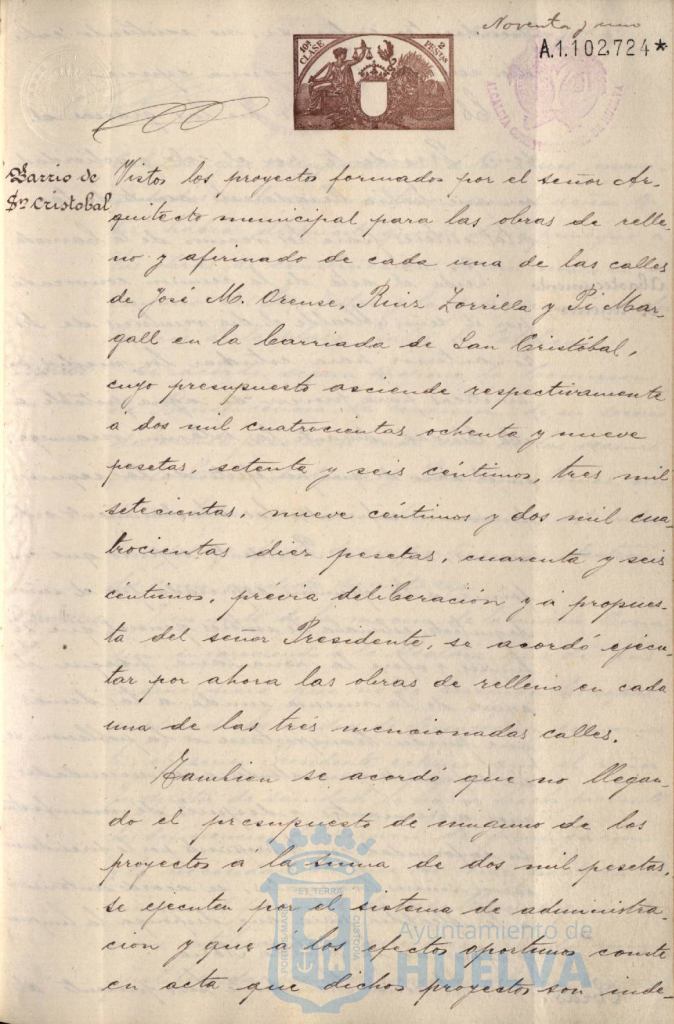 Noventa y uno
A.1.102.724*
10ª CLASE
2 PESETAS
ALCALDIA
HUELVA
Barrio de
Sn Cristobal
Vistos los proyectos formados por el señor Ar-
quitecto municipal para las obras de relle-
no y afirmado de cada una de las calles
de José M. Orense, Ruiz Zorrilla y Pi Mar-
gall en la barriada de San Cristóbal,
cuyo presupuesto asciende respectivamente
á dos mil cuatrocientas ochenta y nueve
pesetas, setenta y seis céntimos, tres mil
setecientas, nueve céntimos y dos mil cua-
trocientas diez pesetas, cuarenta y seis
céntimos, prévia deliberación y á propues-
ta del señor Presidente, se acordó ejecu-
tar por ahora las obras de relleno en cada
una de las tres mencionadas calles.
Tambien se acordó que no llegan-
do el presupuesto de ninguno de los
proyectos á la suma de dos mil pesetas,
se ejecuten por el sistema de administra-
cion y que á los efectos oportunos conste
en acta que dichos proyectos son inde-
Ayuntamiento de
HUELVA